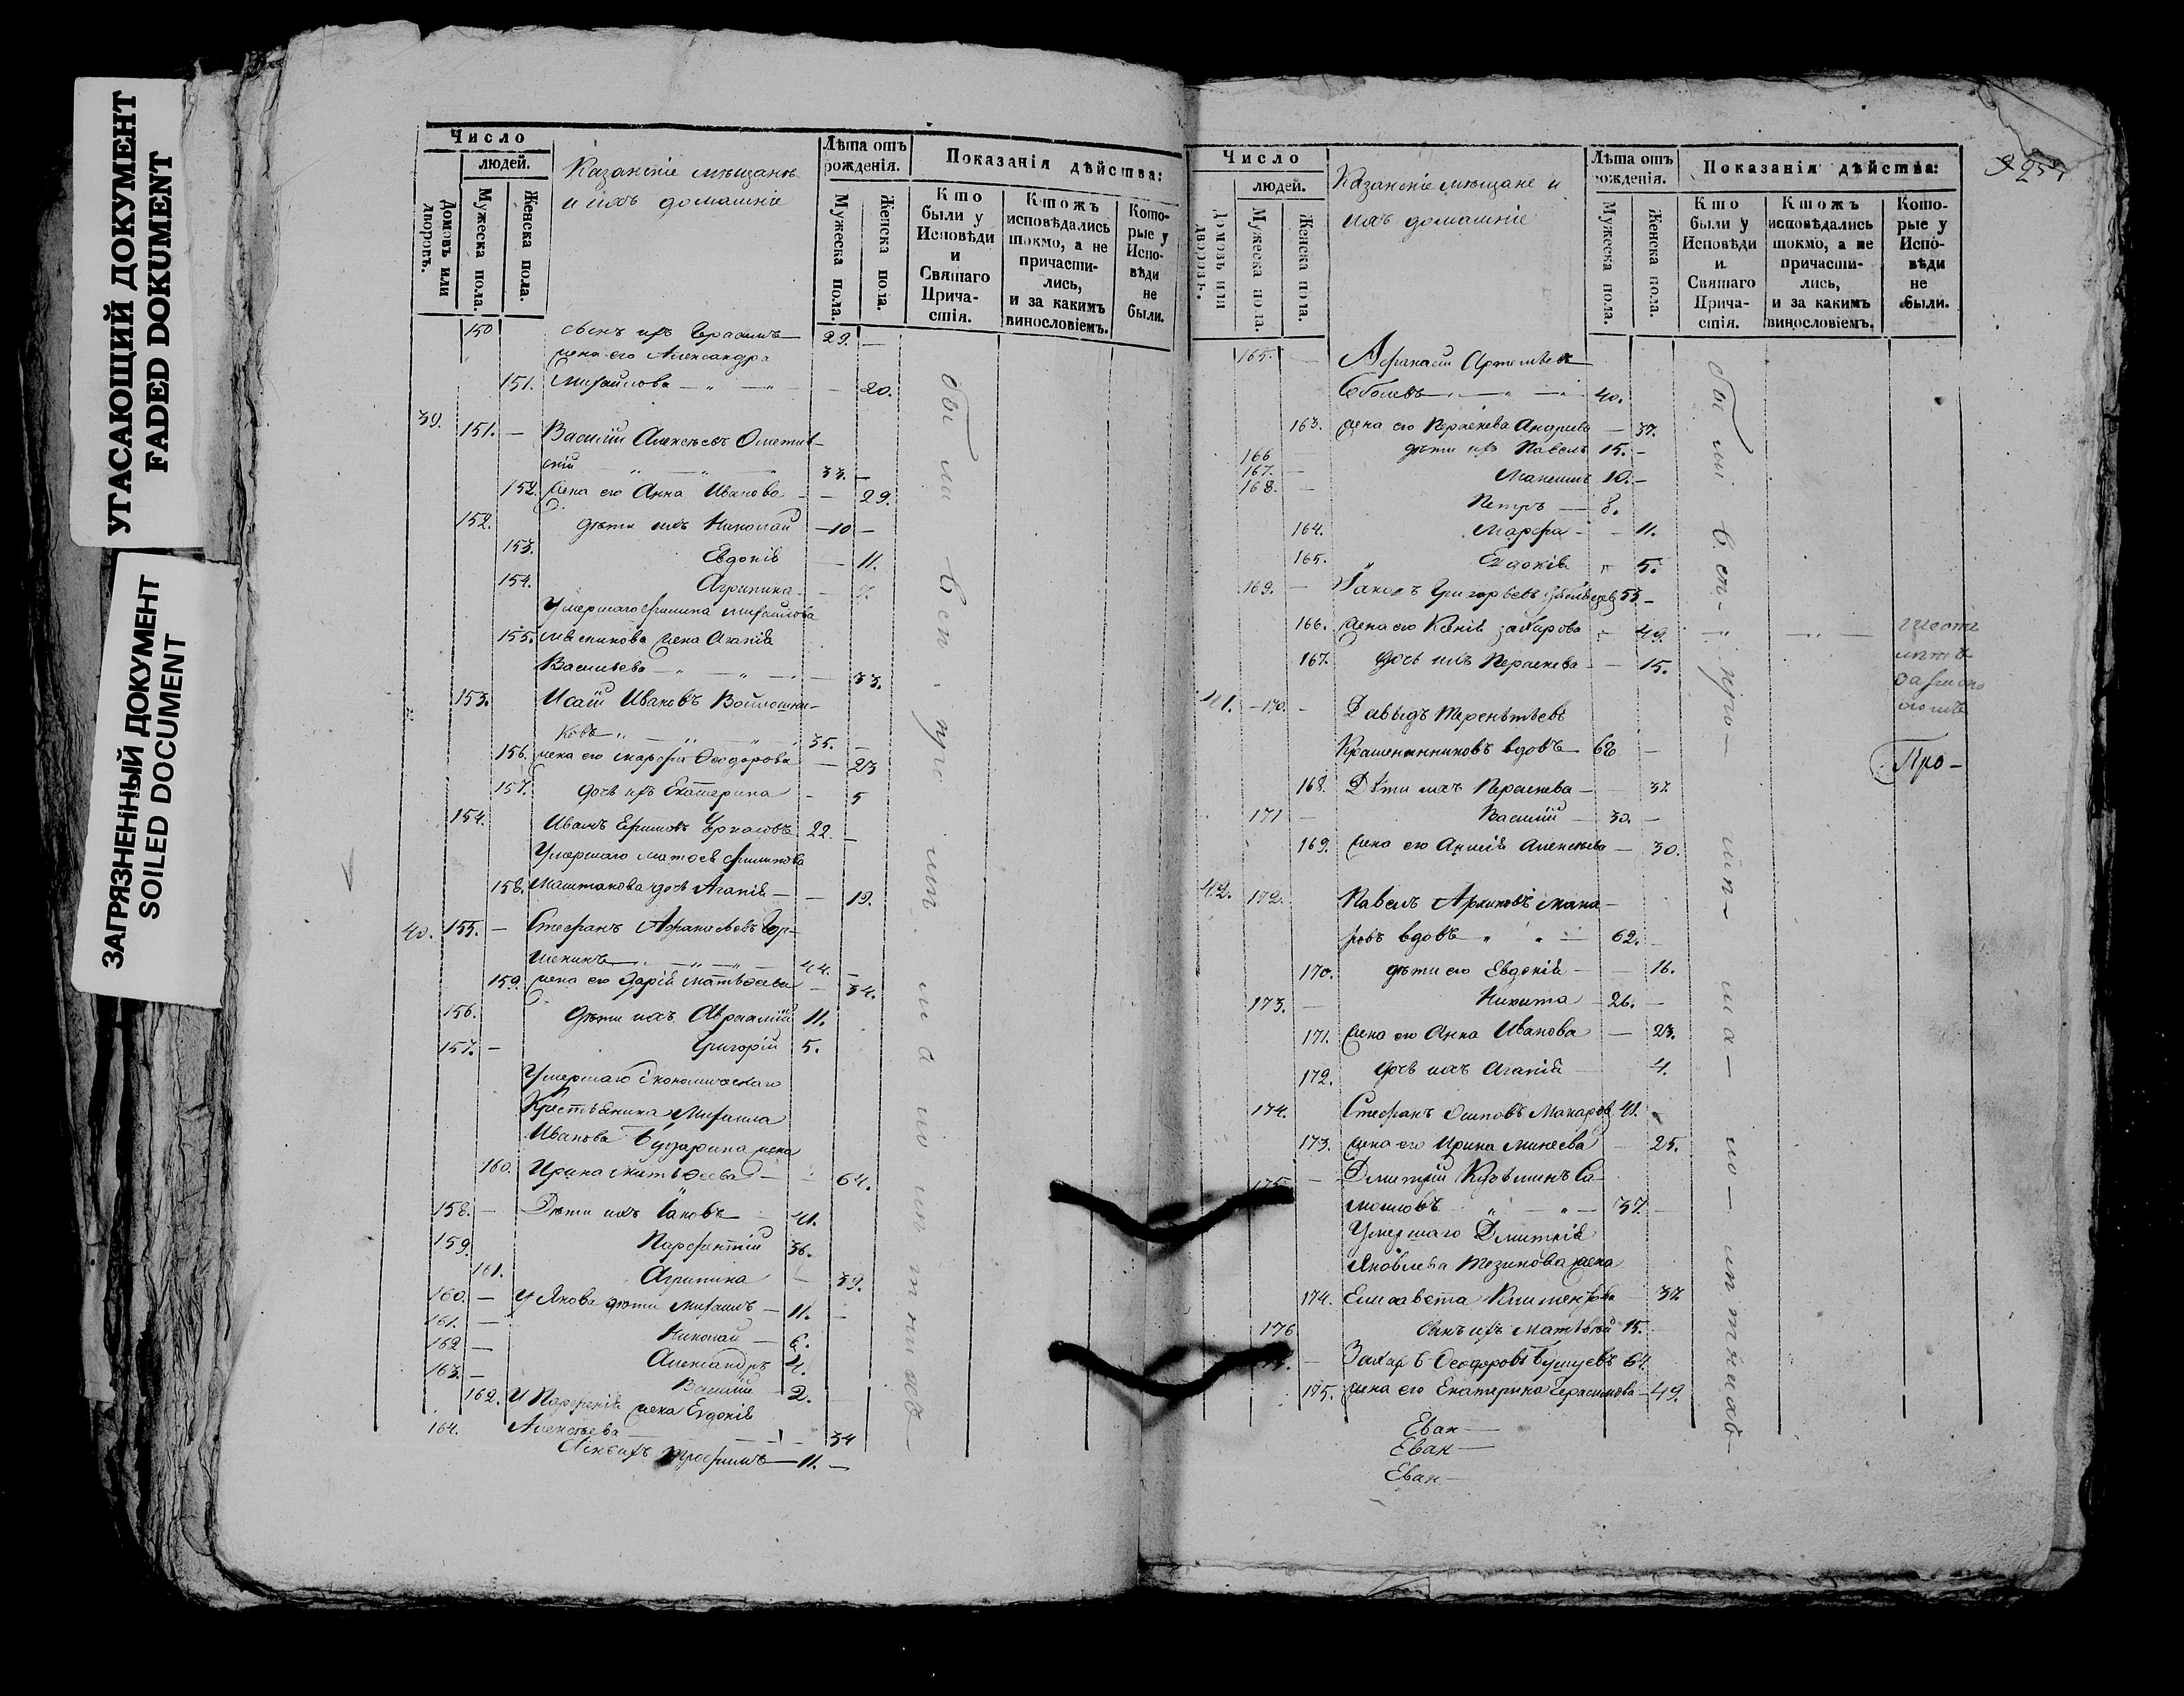 УГАСАЮЩИЙ ДОКУМЕНТ
FADED DOKUMENT
ЗАГРЯЗНЕННЫЙ ДОКУМЕНТ
SOILED DOCUMENT
Число
людей.
Домовъ или дворовъ.
Мужеска пола.
Женска пола.
Казанскіе мѣщане
и ихъ домашніе
Лѣта отъ рожденія.
Мужеска пола.
Женска пола.
Показанія дѣйства:
Кто были у Исповѣди и Святаго Причастія.
Ктожъ исповѣдались токмо, а не причастились, и за какимъ винословіемъ.
Которые у Исповѣди не были.
150 сынъ ихъ Герасимъ 29. —
жена его Александра
151. Михайлова — „ — „ — 20.
39. 151. — Василій Алексѣевъ
скій 33. —
152. жена его Анна Иванова — 29.
152. дѣти ихъ Николай — 10 —
153. Евдокія — 11.
154. Агрипина — 7.
Умершаго Филипа Михайлова
155. жена Агапія
Васильева — „ — „ — 33.
153. Исай Ивановъ Войлошни-
ковъ „ — „ — „ 35. —
156. жена его Марфа Ѳеодорова — 23
157. дочь ихъ Екатерина — 5
154. Иванъ Ефимовъ 22. —
Умершаго
158. дочь Агапія — 19.
40. 155. — Стефанъ Афанасьевъ Гор-
шенинъ — „ — „ — 44. —
159. жена его Дарія Матвѣева — 34.
156. дѣти ихъ Авраамій 11.
157. — Григорій 5.
Умершаго Экономическаго
Крестьянина Михаила
Иванова жена
160. Ирина Матвѣева — 64.
158. — Дѣти ихъ Іаковъ — 41.
159. Парфентій 36.
161. Агрипина — 39.
160. — У Якова дѣти Михаилъ — 11. —
161. — Николай — 6.
162 — Александръ 4.
163. — Василій — 2.
162. У Парфенія жена Евдокія
Алексѣева — 34
164. Сынъ ихъ Трофимъ — 11. —
были в си. при. ча
Число
людей.
Домовъ или дворовъ.
Мужеска пола.
Женска пола.
Казанскіе мѣщане и
ихъ домашніе
Лѣта отъ рожденія.
Мужеска пола.
Женска пола.
Показанія дѣйства:
Кто были у Исповѣди и Святаго Причастія.
Ктожъ исповѣдались токмо, а не причастились, и за какимъ винословіемъ.
Которые у Исповѣди не были.
165. — Афанасій Артемьевъ
Соболевъ — „ — 40.
163. жена его Параскева Андреева — 37.
166 дѣти ихъ Павелъ 15. —
167. — Максимъ 10. —
168. — Петръ — 8.
164. Марфа — 11.
165. Евдокія „ 5.
169. — Іаковъ Григорьевъ 53 —
166. жена его Ксенія Захарова — 49.
167. дочь ихъ Параскева — 15.
41. — 170. — Давыдъ Терентьевъ
Крашенинниковъ вдовъ — 62 —
168. Дѣти ихъ Параскева — 37.
171 — Василій — 30. —
169. жена его Анисія Алексѣева — 30.
42. 172. Павелъ Архиповъ Мака-
ровъ вдовъ „ „ — 62. —
170. дѣти его Евдокія — 16.
173. — Никита — 26. —
171. жена его Анна Иванова — 23.
172. дочь ихъ Агапія 4.
174. Стефанъ Осиповъ Макаровъ 41. —
173. жена его Ирина Минеева — 25.
175. — Дмитрій Козьминъ Са-
мойловъ „ — „ — 37. —
Умершаго Дмитрія
Яковлева жена
174. Елисавета Климентова — 37.
176 сынъ ихъ Матвѣй 15. —
— Захаръ Ѳеодоровъ Бушуевъ 64.
175. жена его Екатерина Герасимова — 49.
были
Про-
Еван —
Еван —
Еван —